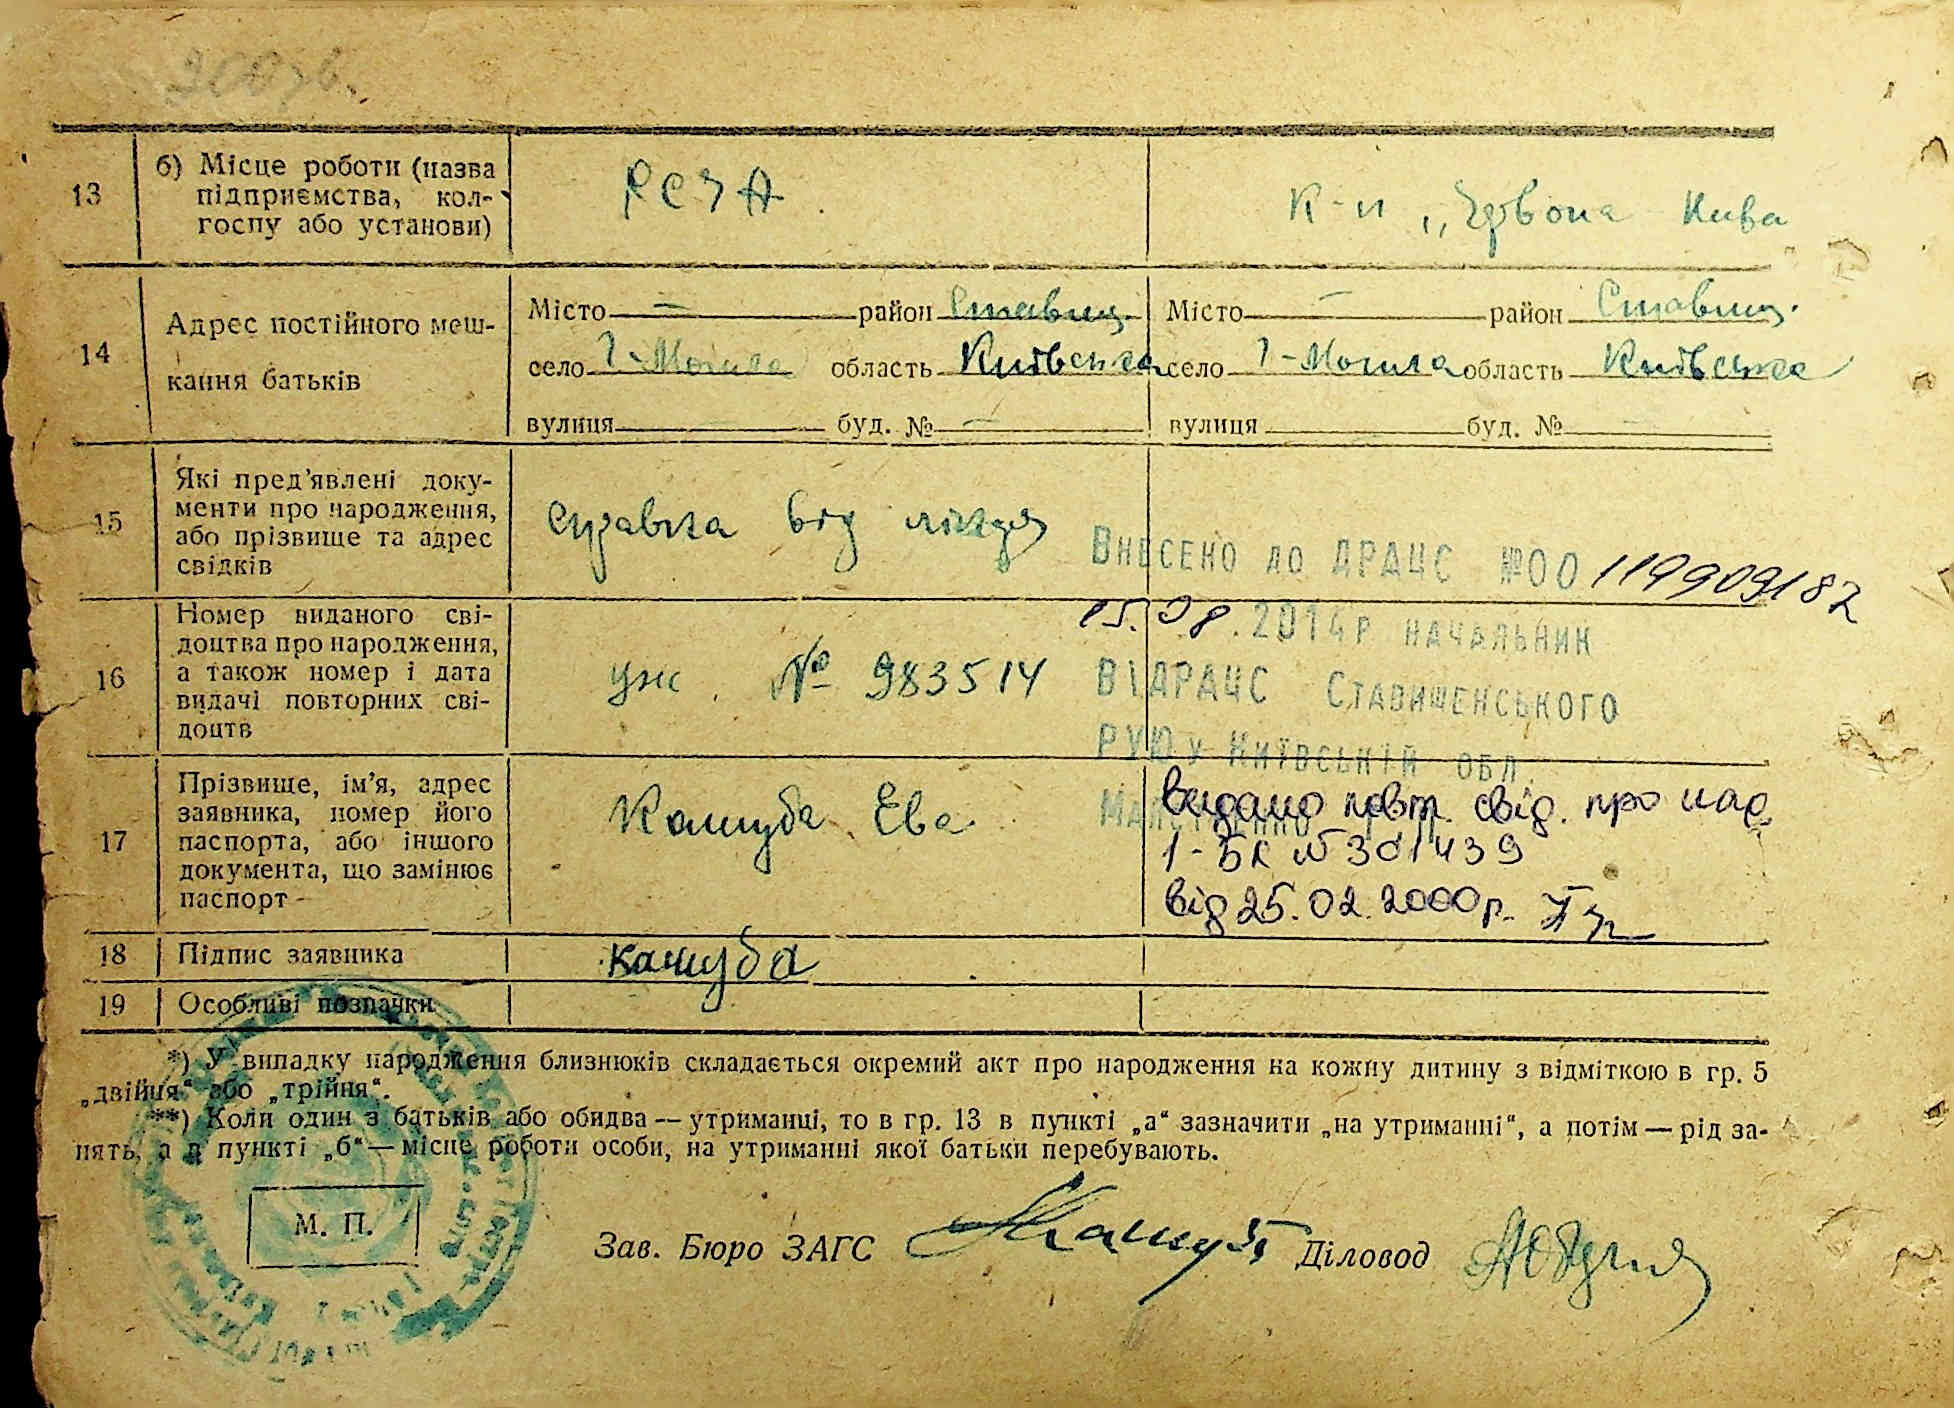 13
б) Місце роботи (назва
підприємства, кол-
госпу або установи)
К-п „Червона Нива
14
Адрес постійного меш-
кання батьків
Місто — район Ставищ.
село І-Могила область Київська
вулиця буд. № —
Місто — район Ставищ.
село І-Могила область Київська
вулиця буд. №
15
Які пред'явлені доку-
менти про народження,
або прізвище та адрес
свідків
справка від лікаря
Внесено до ДРАЦС №00 119909187
15.08.2014р начальник
ВІДРАЦС Ставищенського
РУЮ у Київській обл.
16
Номер виданого сві-
доцтва про народження,
а також номер і дата
видачі повторних сві-
доцтв
уж. № 983514
17
Прізвище, ім'я, адрес
заявника, номер його
паспорта, або іншого
документа, що замінює
паспорт
Кашуба Ева
видано повт. свід. про нар.
1-БК №301439
від 25.02.2000р.
18
Підпис заявника
Кашуба
19
Особливі позначки
*) У випадку народження близнюків складається окремий акт про народження на кожну дитину з відміткою в гр. 5
„двійня“ або „трійня“.
**) Коли один з батьків або обидва — утриманці, то в гр. 13 в пункті „а“ зазначити „на утриманні“, а потім — рід за-
нять, а в пункті „б“ — місце роботи особи, на утриманні якої батьки перебувають.
М. П.
Зав. Бюро ЗАГС
Діловод